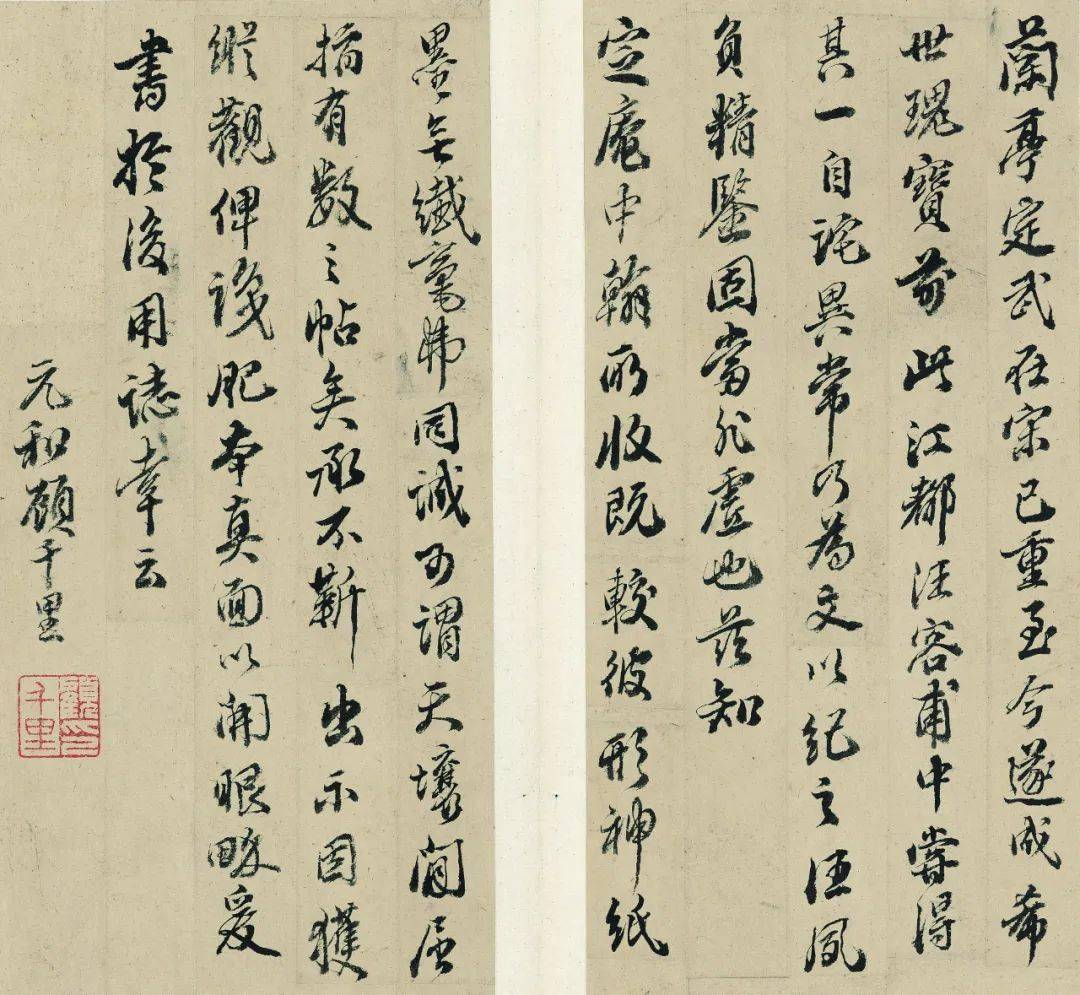 蘭亭定武在宋已重至今遂成希
世瑰寶前此江都汪容甫中嘗得
其一自詫異常乃為文以紀之汪夙
負精鑒固當非虛也茲知
定庵中翰所收既較彼形神紙
墨無纖毫弗同誠可謂天壤間屈
指有數之帖矣承不靳出示因獲
縱觀俾識肥本真面以開眼畯爰
書於後用誌幸云
元和顧千里
顧千里印